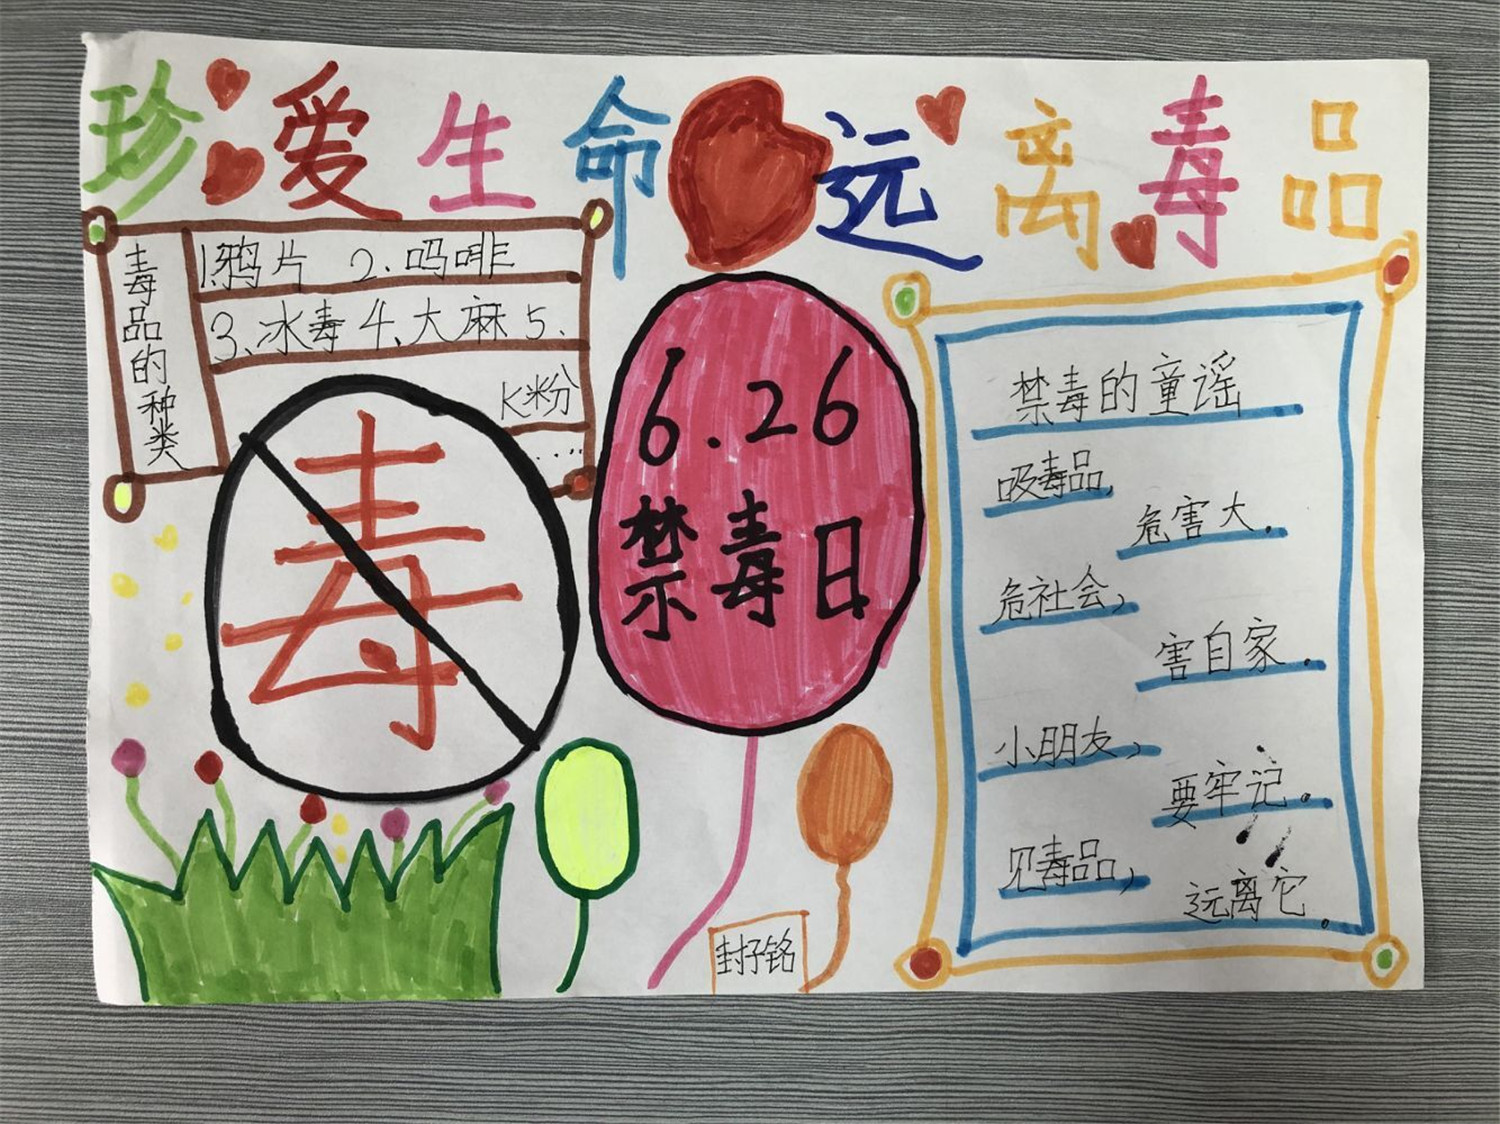 珍爱生命远离毒品
毒品的种类
1.鸦片 2.吗啡
3.冰毒 4.大麻 5.
K粉
.....
毒
6.26
禁毒日
禁毒的童谣
吸毒品,
危害大.
危社会,
害自家.
小朋友,
要牢记.
见毒品,
远离它.
封子铭